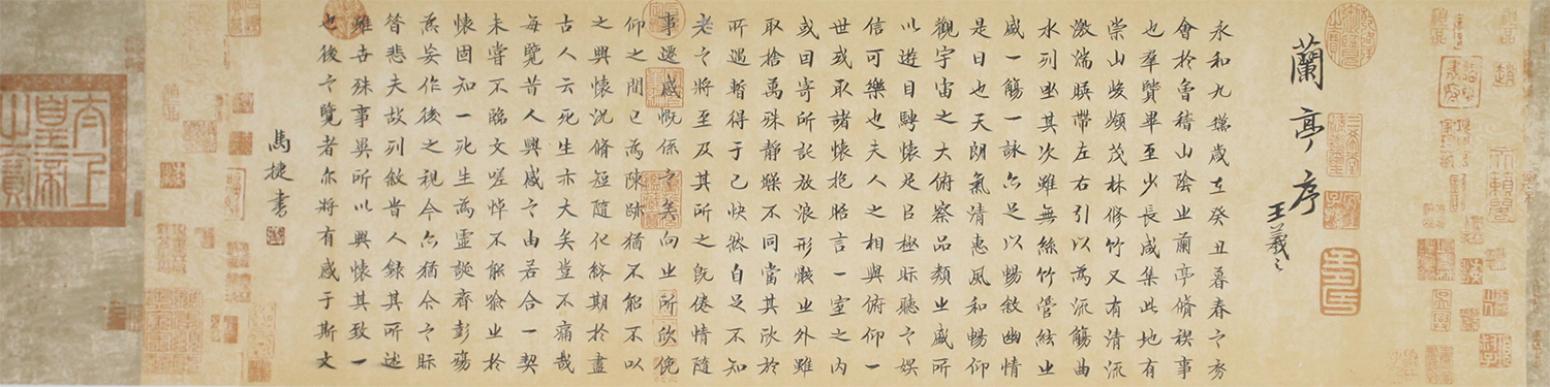 蘭亭序
王羲之
永和九年歲在癸丑暮春之初
會於會稽山陰之蘭亭脩禊事
也羣賢畢至少長咸集此地有
崇山峻領茂林脩竹又有清流
激湍暎帶左右引以為流觴曲
水列坐其次雖無絲竹管絃之
盛一觴一詠亦足以暢敘幽情
是日也天朗氣清惠風和暢仰
觀宇宙之大俯察品類之盛所
以遊目騁懷足以極視聽之娛
信可樂也夫人之相與俯仰一
世或取諸懷抱晤言一室之內
或因寄所託放浪形骸之外雖
取捨萬殊靜躁不同當其欣於
所遇暫得于己快然自足不知
老之將至及其所之既倦情隨
事遷感慨係之矣向之所欣俛
仰之間已為陳跡猶不能不以
之興懷況脩短隨化終期於盡
古人云死生亦大矣豈不痛哉
每覽昔人興感之由若合一契
未嘗不臨文嗟悼不能喻之於
懷固知一死生為虛誕齊彭殤
為妄作後之視今亦猶今之視
昔悲夫故列敘昔人錄其所述
雖世殊事異所以興懷其致一
也後之覽者亦將有感于斯文
馬捷書
太上
皇帝
之寶